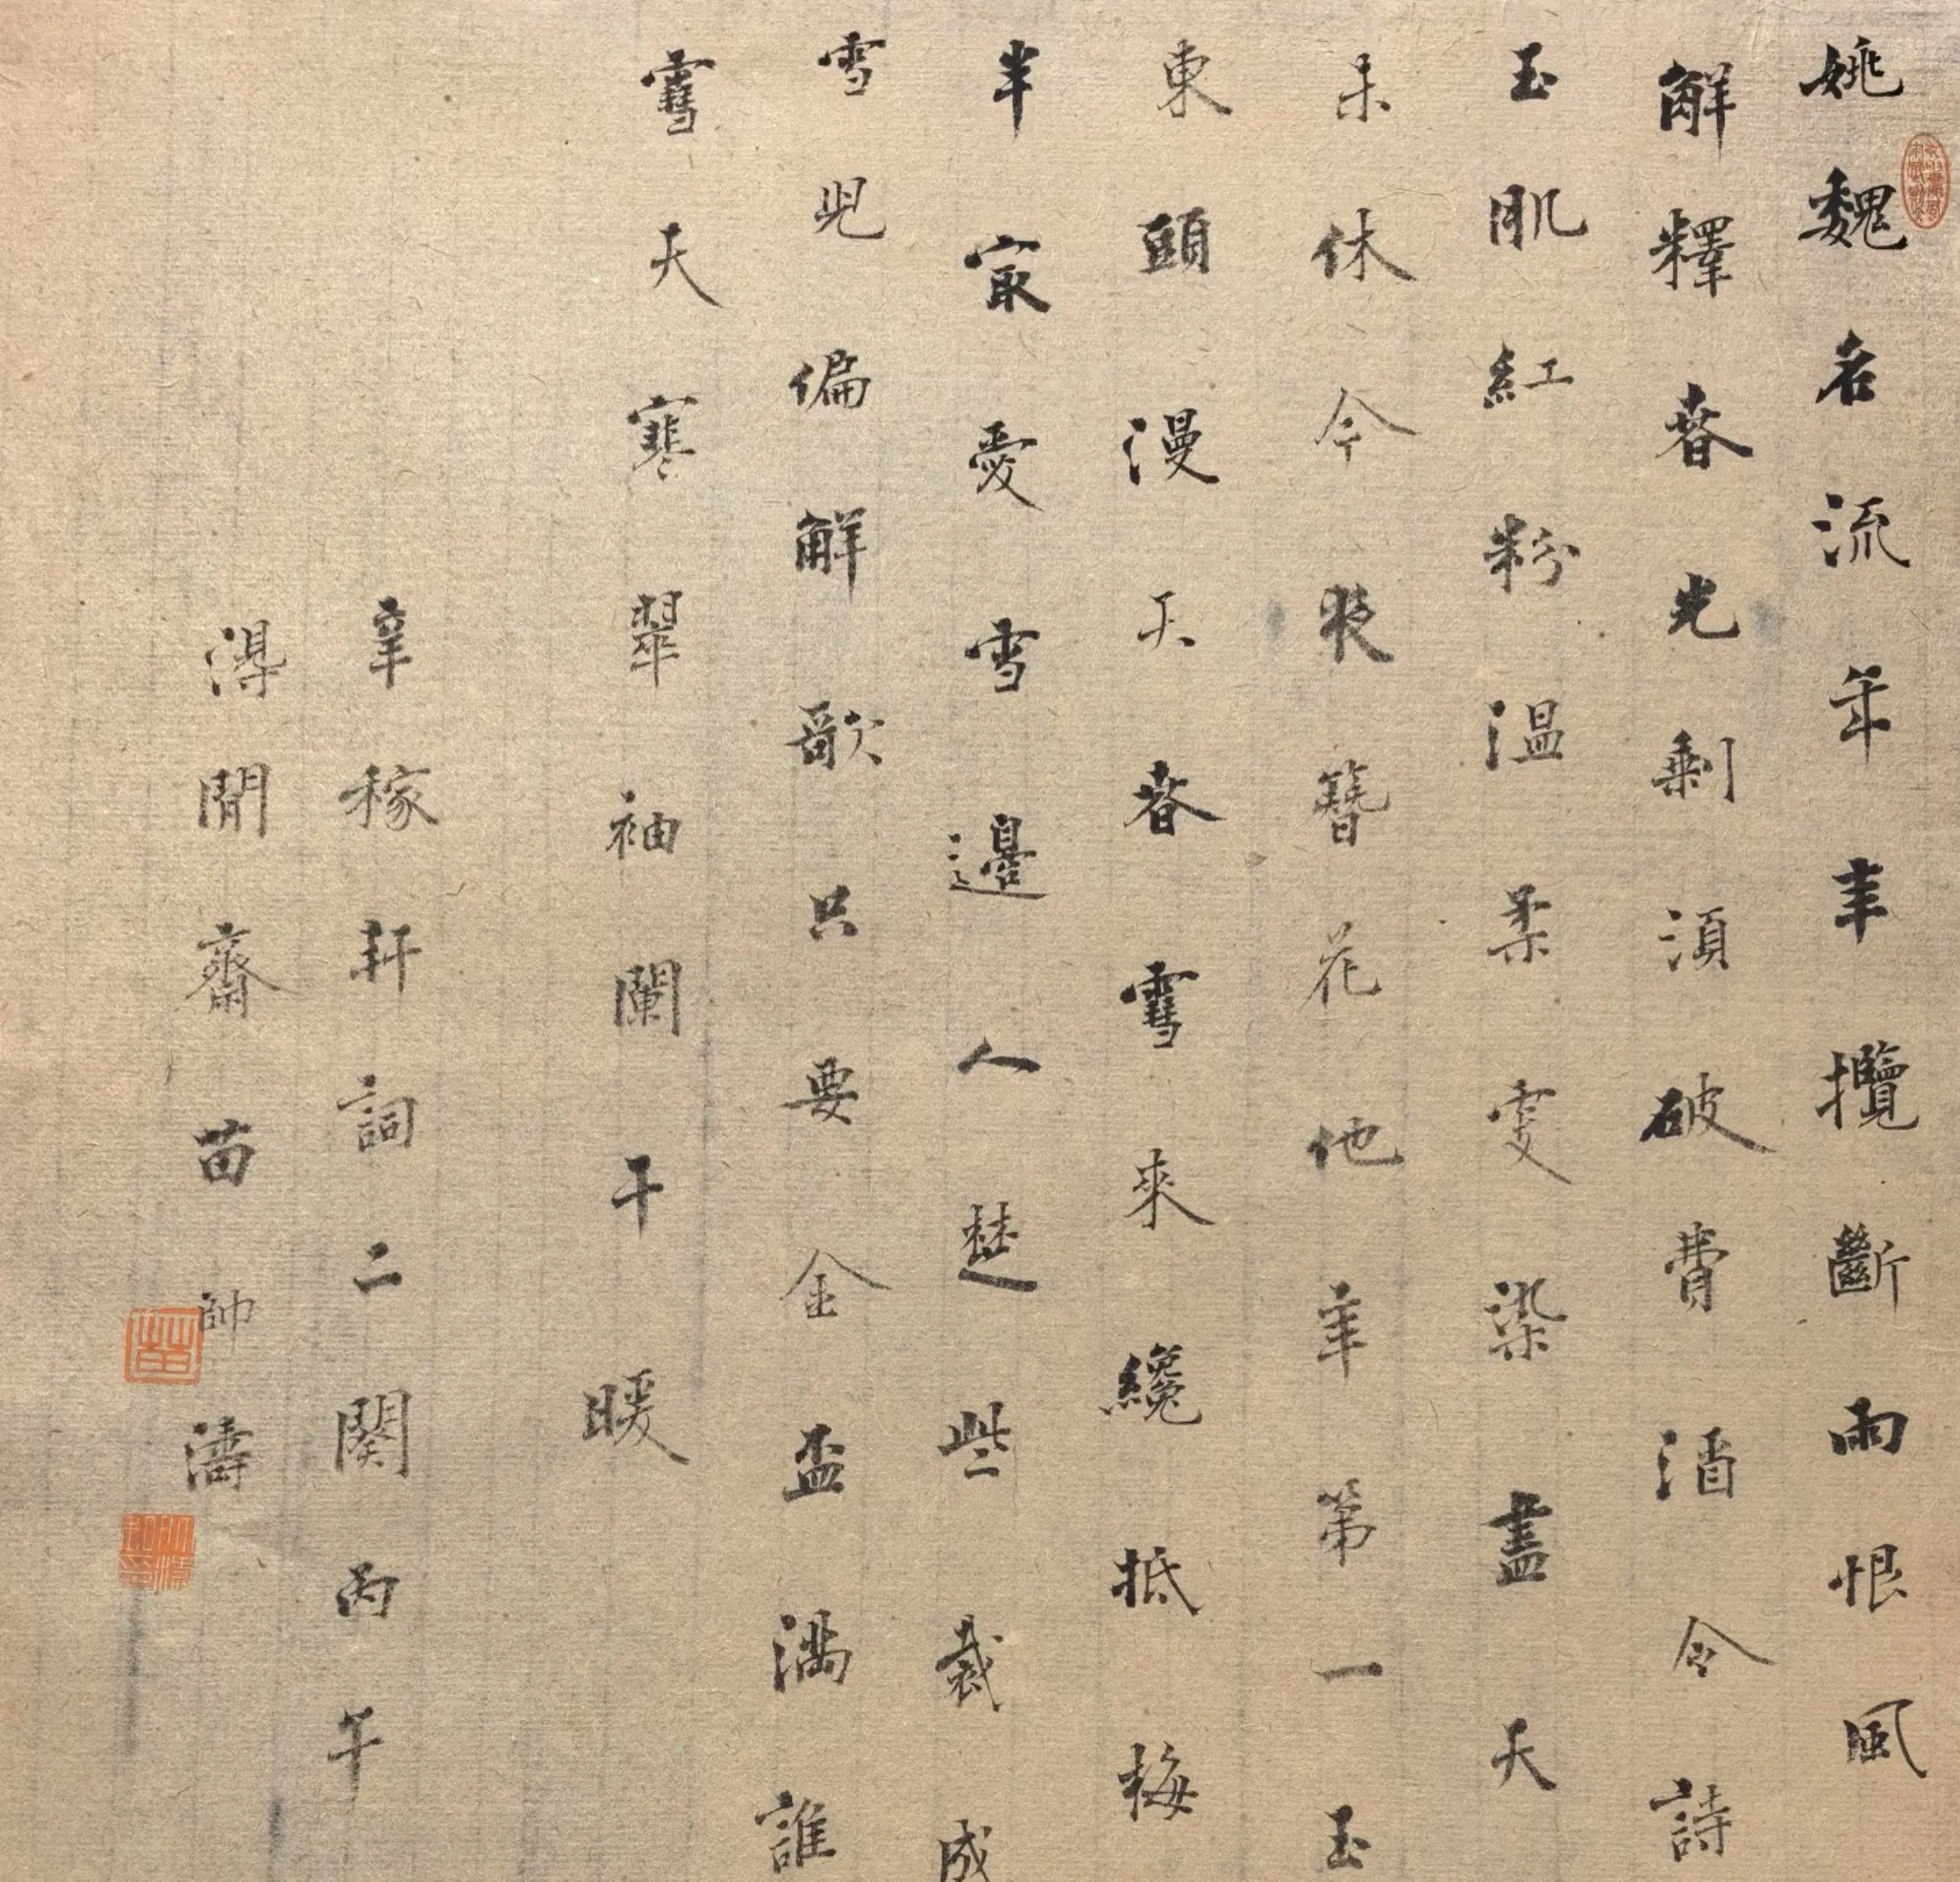 姚魏名流年年攬斷雨恨風
解釋春光剩須破費酒令詩
玉肌紅粉溫柔更染盡天
未休今夜簪花他年第一玉
東頭漫天春雪來纔抵梅
半最愛雪邊人楚些裁成
雪兒偏解歌只要金盃滿誰
雪天寒翠袖闌干暖
辛稼軒詞二闋丙午
得閒齋苗帥濤